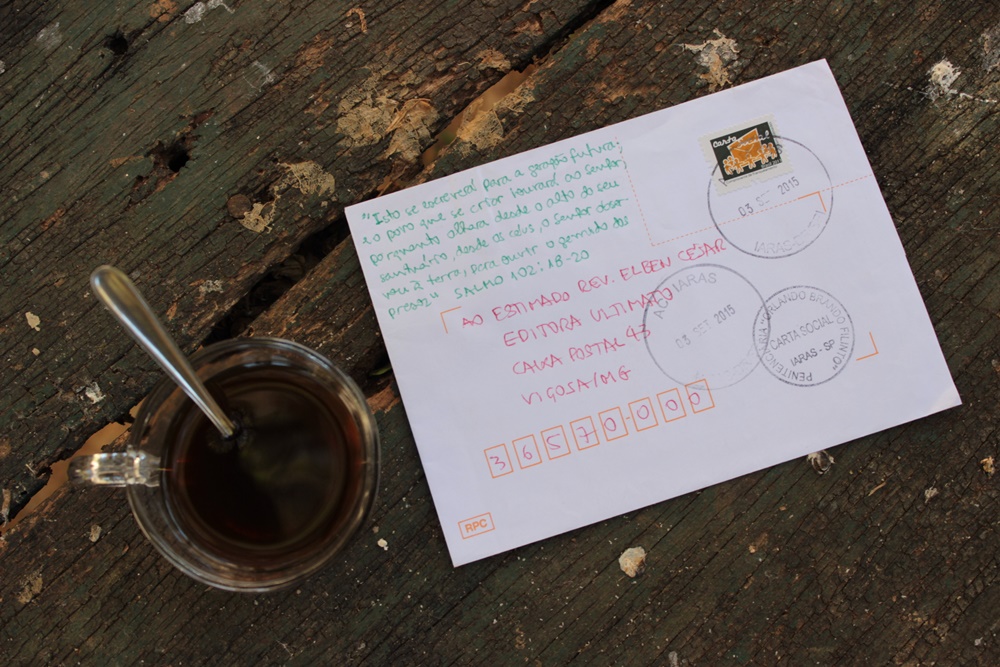 "Isto se escreverá para a geração futura;
e o povo que se criar louvará ao Senhor
porquanto olhara desde o alto do seu
santuário, desde os céus, o Senhor obser-
vou a terra; para ouvir o gemido dos
presos" SALMO 102:18-20
Carta
03 SET 2015
IARAS
AO ESTIMADO REV. ELBEN CÉSAR
EDITORA ULTIMATO
CAIXA POSTAL 43
VIÇOSA/MG
IARAS
03 SET 2015
PENITENCIÁRIA "ORLANDO BRANDO FILINTO"
CARTA SOCIAL
IARAS - SP
36570-000
RPC